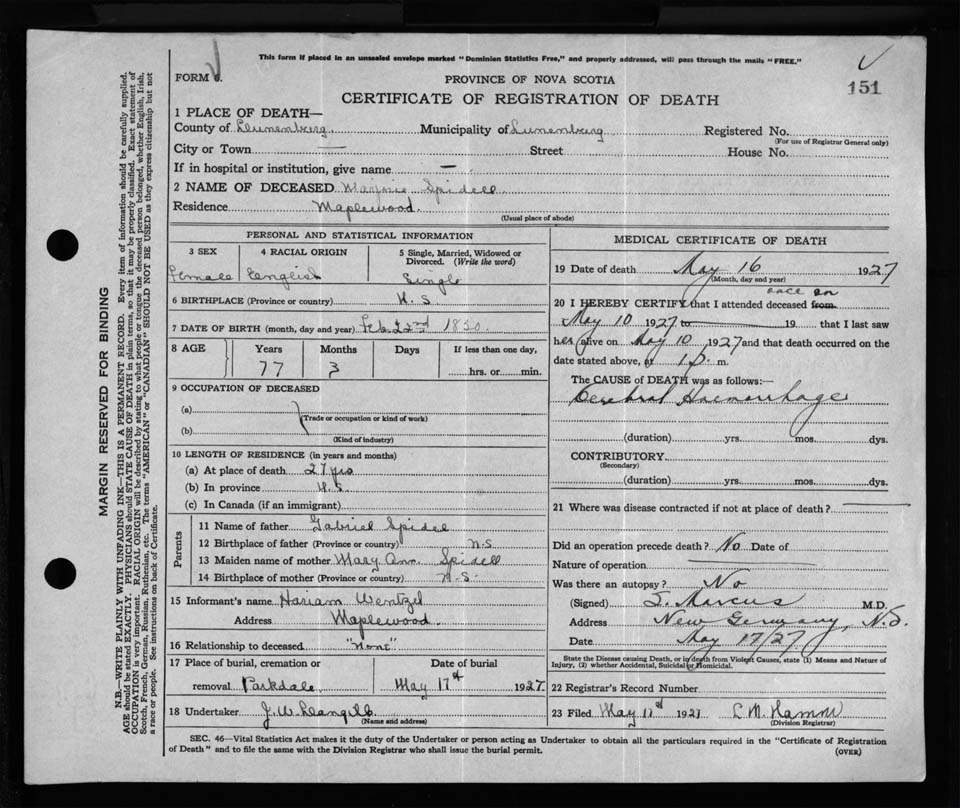 This form if placed in an unsealed envelope marked "Dominion Statistics Free," and properly addressed, will pass through the mails "FREE."
FORM 6.
PROVINCE OF NOVA SCOTIA
151
CERTIFICATE OF REGISTRATION OF DEATH
1 PLACE OF DEATH—
County of Lunenberg Municipality of Lunenberg Registered No.
(For use of Registrar General only)
City or Town — Street House No.
If in hospital or institution, give name —
2 NAME OF DECEASED Spidell
Residence Maplewood.
(Usual place of abode)
PERSONAL AND STATISTICAL INFORMATION
3 SEX 4 RACIAL ORIGIN 5 Single, Married, Widowed or Divorced. (Write the word)
Female English Single
6 BIRTHPLACE (Province or country) N. S
7 DATE OF BIRTH (month, day and year) Feb. 22nd 1850.
8 AGE Years Months Days If less than one day,
77 3 hrs. or min.
9 OCCUPATION OF DECEASED
(a)
(Trade or occupation or kind of work)
(b)
(Kind of industry)
10 LENGTH OF RESIDENCE (in years and months)
(a) At place of death 27 yrs
(b) In province N. S.
(c) In Canada (if an immigrant)
Parents
11 Name of father Gabriel Spidel
12 Birthplace of father (Province or country) N.S
13 Maiden name of mother Mary Ann Spidell
14 Birthplace of mother (Province or country) N. S.
15 Informant's name Hariam Wentzel
Address Maplewood.
16 Relationship to deceased "None"
17 Place of burial, cremation or Date of burial
removal Parkdale May 17th 1927.
18 Undertaker J. W.
(Name and address)
MEDICAL CERTIFICATE OF DEATH
19 Date of death May 16 1927
(Month, day and year)
once on
20 I HEREBY CERTIFY that I attended deceased from
May 10 1927 to 19 that I last saw
her alive on May 10, 1927 and that death occurred on the
date stated above, at 1 p. m.
The CAUSE of DEATH was as follows:—
Cerebral Haemorrhage
(duration) yrs. mos. dys.
CONTRIBUTORY
(Secondary)
(duration) yrs. mos. dys.
21 Where was disease contracted if not at place of death?
Did an operation precede death? No Date of
Nature of operation
Was there an autopsy? No
(Signed) S. Marcus M.D.
Address New Germany, N.S.
Date May 17/27
State the Disease causing Death, or in death from Violent Causes, state (1) Means and Nature of
Injury, (2) whether Accidental, Suicidal or Homicidal.
22 Registrar's Record Number
23 Filed May 1927
(Division Registrar)
SEC. 46—Vital Statistics Act makes it the duty of the Undertaker or person acting as Undertaker to obtain all the particulars required in the "Certificate of Registration
of Death" and to file the same with the Division Registrar who shall issue the burial permit.
(OVER)
MARGIN RESERVED FOR BINDING
N.B.—WRITE PLAINLY WITH UNFADING INK—THIS IS A PERMANENT RECORD. Every item of information should be carefully supplied.
AGE should be stated EXACTLY. PHYSICIANS should STATE CAUSE OF DEATH in plain terms, so that it may be properly classified. Exact statement of
OCCUPATION is very important. RACIAL ORIGIN will be described by stating to what people or tongue the deceased person belonged, whether English, Irish,
Scotch, French, German, Russian, Ruthenian, etc. The terms "AMERICAN" or "CANADIAN" SHOULD NOT BE USED as they express citizenship but not
a race or people. See instructions on back of Certificate.